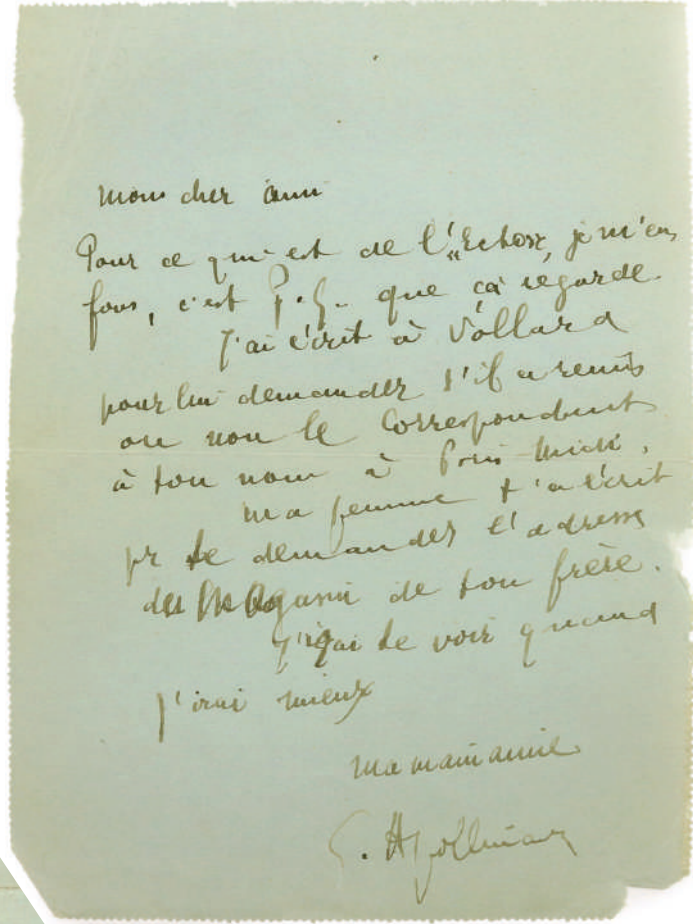 Mon cher ami
Pour ce qui est de l' je m'en
fous, c'est P.G. que ça regarde
J'ai écrit à Vollard
pour lui demander s'il a remis
ou non le Correspondant
à ton nom à Paris Midi.
Ma femme t'a écrit
pr te demander l'adresse
du Magasin de ton frère.
J'irai te voir quand
j'irai mieux
ma main amie
G. Apollinaire